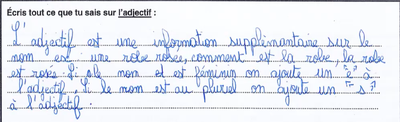 Écris tout ce que tu sais sur l'adjectif :
L'adjectif est une information supplémantaire sur le
nom ex: une robe rose, comment est la robe, la robe
est rose. Si le nom et est féminin on ajoute un "e" à
l'adjectif. Si le nom est au pluriel on ajoute un "s"
à l'adjectif.